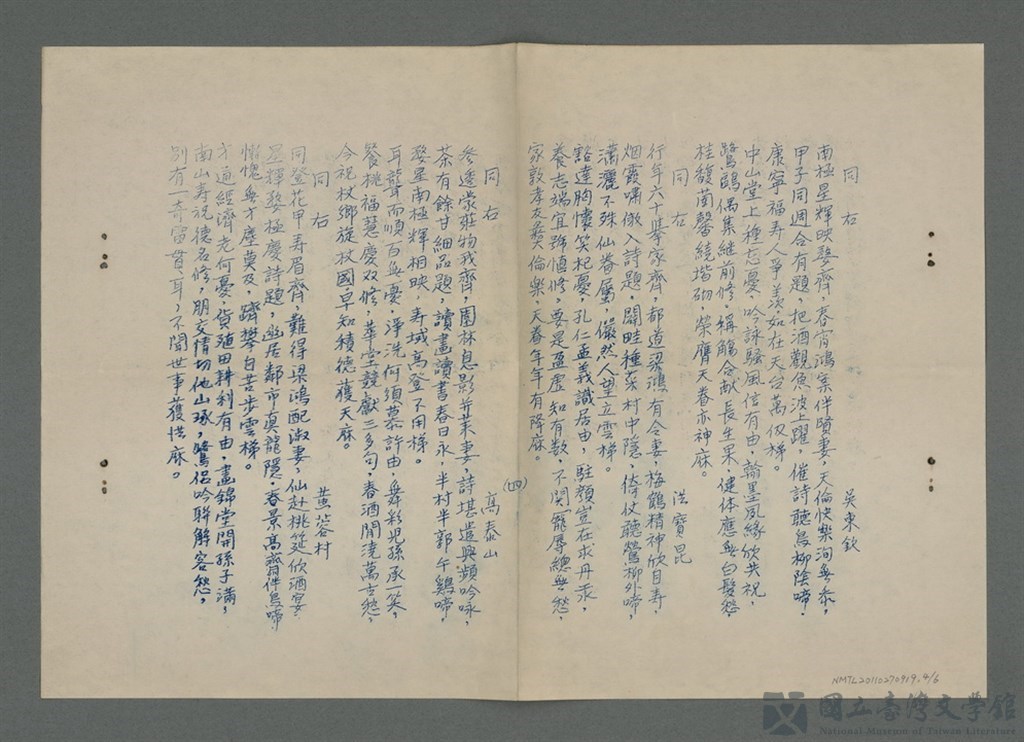 同右 吳東欽
南極星輝映婺齊，春宵鴻案伴賢妻，天倫快樂洵無忝，
甲子同週合有題，把酒觀魚波上躍，催詩聽鳥柳陰啼，
康寧福壽人爭羨，如在天台萬仞梯。
中山堂上種忘憂，吟詠騷風信有由，翰墨夙緣欣共祝，
鷺鷗偶集継前修，稱觴合献長生果，健体應無白髮愁，
桂馥蘭馨繞堦砌，榮膺天眷亦神庥。
同右 洪寶昆
行年六十擧家齊，都道梁鴻有令妻，梅鶴精神欣目寿，
烟霞嘯傲入詩題，闢畦種菜村中隱，倚仗聽鶯柳外啼，
瀟灑不殊仙眷屬，儼然人望立雲梯。
豁達胸懷笑杞憂，孔仁孟義識居由，駐顏豈在求丹汞，
養志端宜號恒修，要是盈虛知有数，不関寵辱總無愁，
家敦孝友彝倫樂，天眷年年有降庥。
（四）
同右 高泰山
參透蒙莊物我齊，園林息影并萊妻，詩堪遣興頻吟咏，
茶有餘甘細品題，讀畫讀書春日永，半村半郭午鷄啼，
婺星南極輝相映，寿域高登不用梯。
耳聾而順百無憂，淨洗何須慕許由，舞彩兒孫承一笑，
餐桃福慧慶双修，華堂競獻三多句，春酒開澆萬古愁，
今祝杖鄉旋杖國，早知積德獲天庥。
同右 黃蓉村
同登花甲寿眉齊，難得梁鴻配淑妻，仙赴桃筵欣酒宴，
星輝婺極慶詩題，幽居鄰市真龍隱，春景高齋伴鳥啼
慚愧無才塵莫及，躋攀自苦步雲梯。
才通經濟老何憂，貨殖田耕利有由，晝錦堂開孫子滿，
南山寿祝德名修，朋交情切他山琢，鷺侶吟聯解客愁，
別有一奇雷貫耳，不聞世事獲怡庥。
NMTL20110270919.4/6
國立臺灣文學館
National Museum of Taiwan Literature